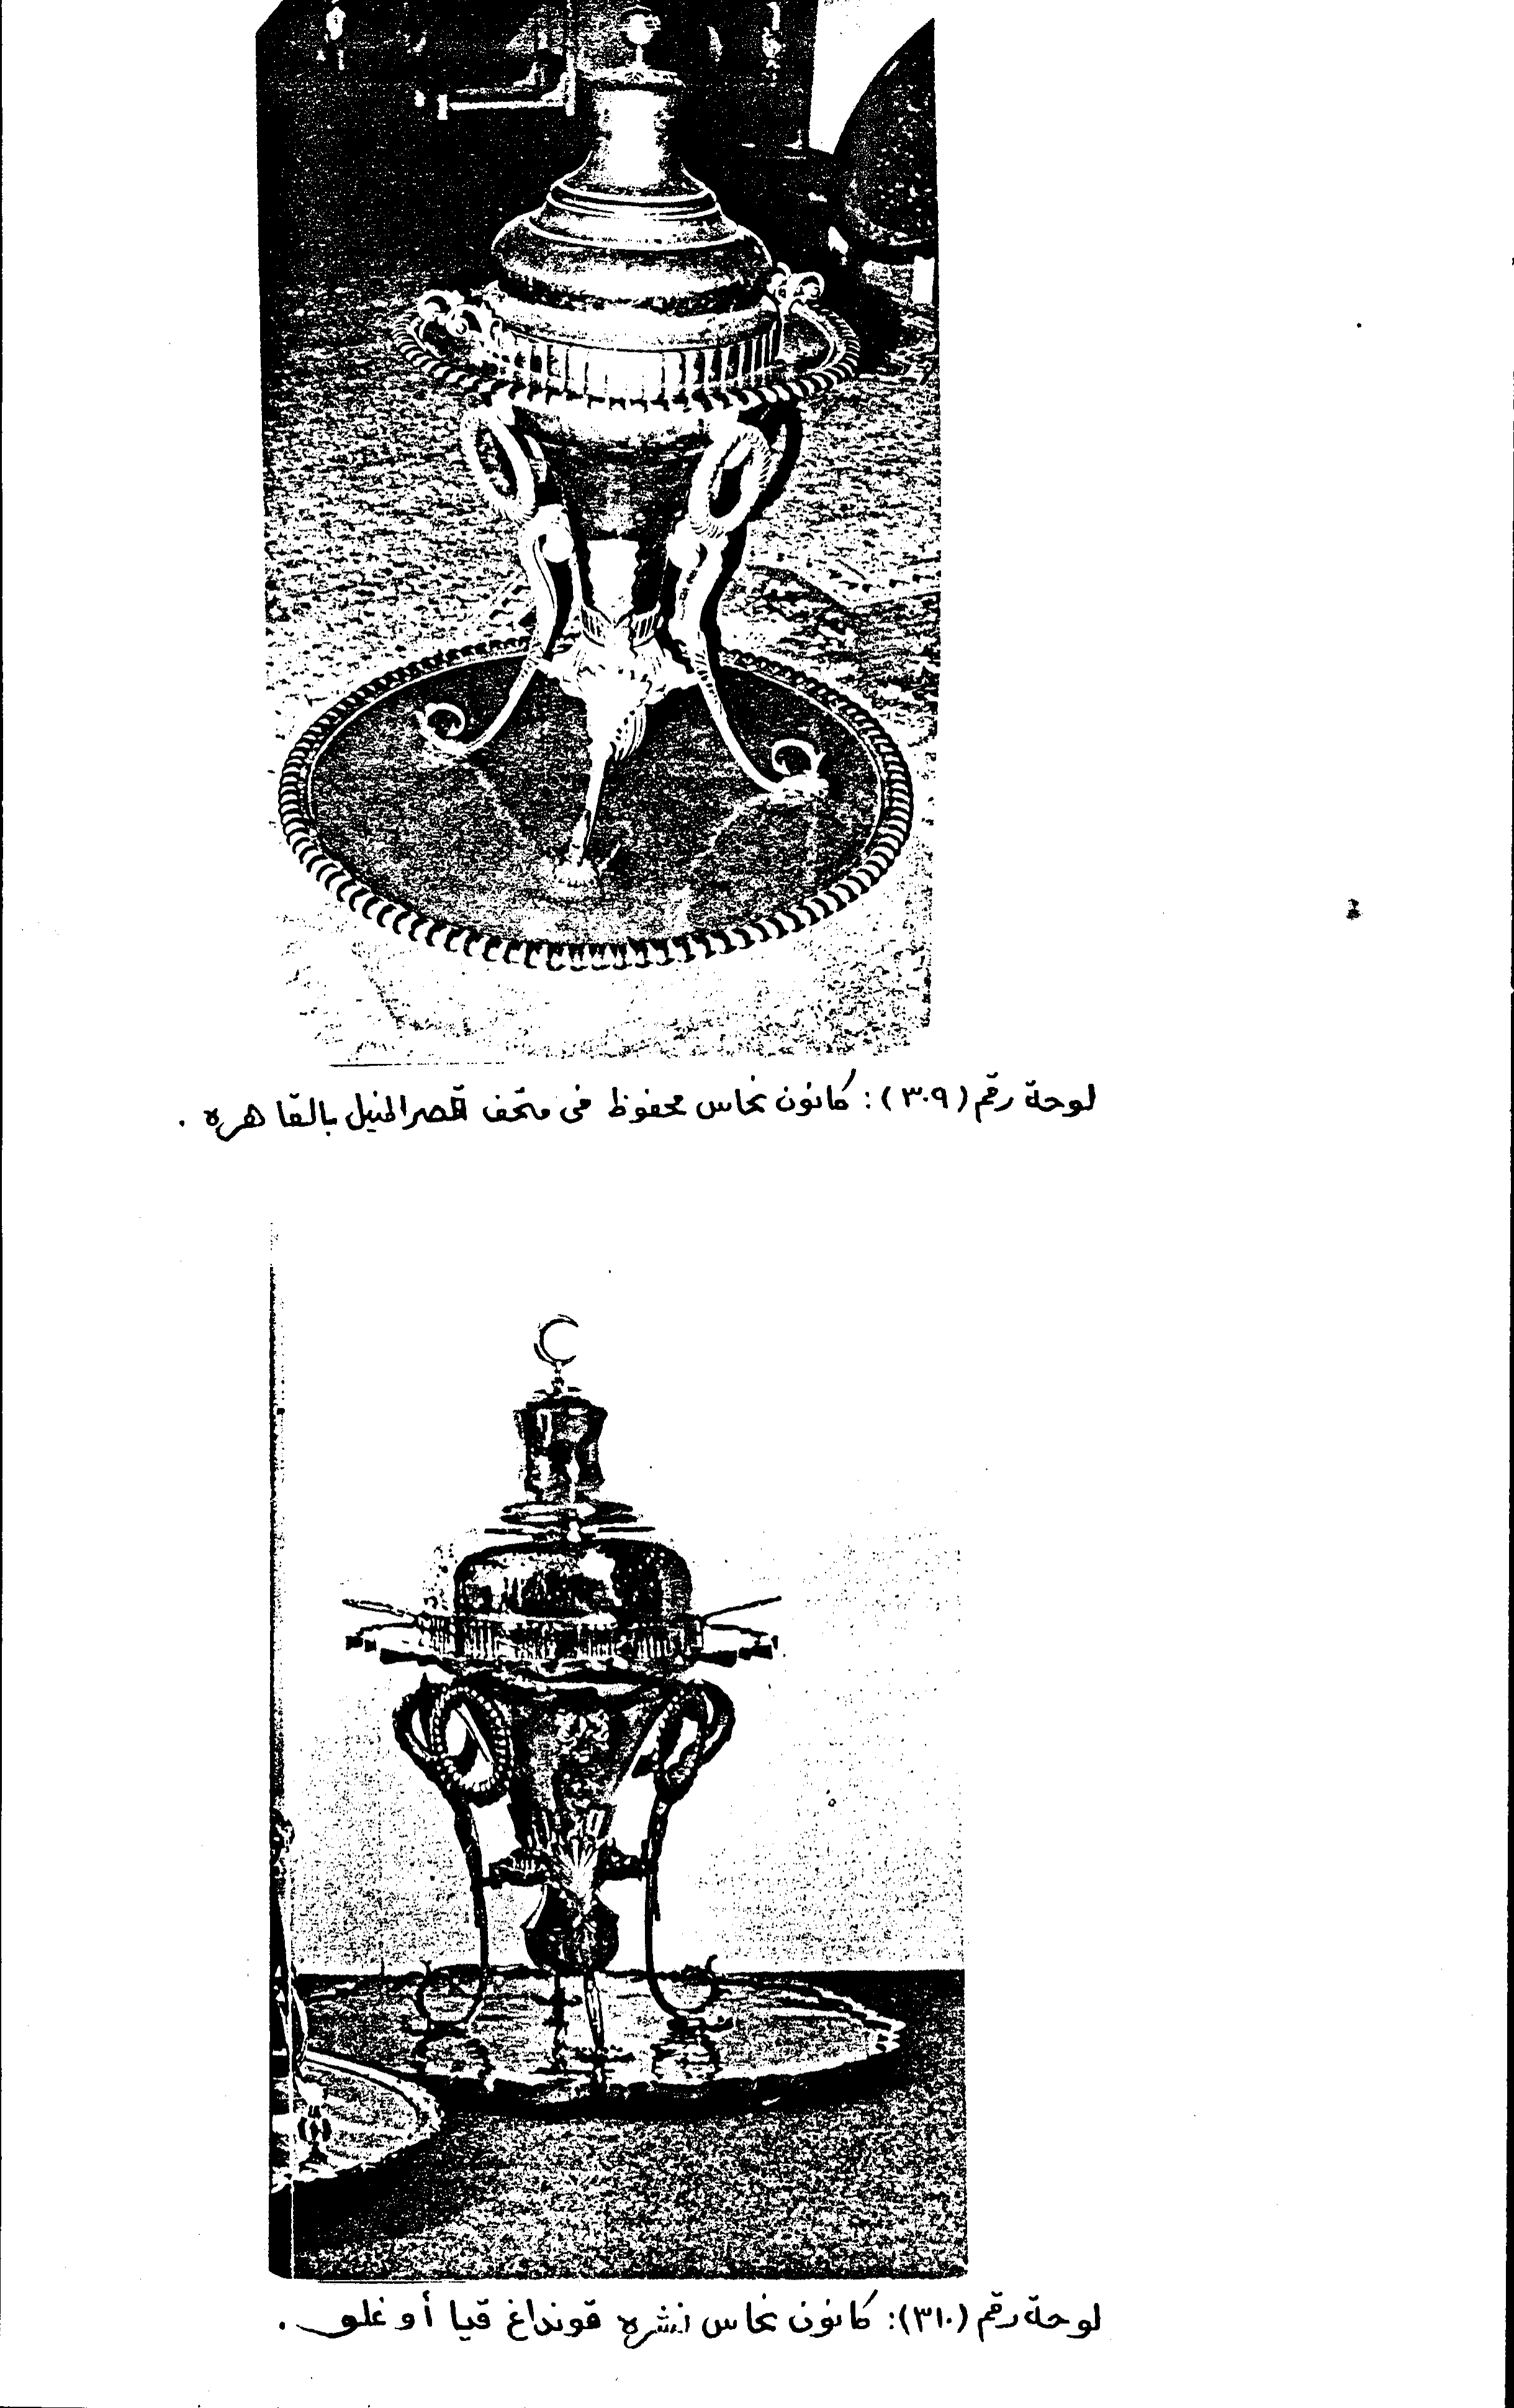 لوحة رقم (٣٠٩): كانون نحاس محفوظ فى متحف قصر المنيل بالقاهره .
لوحة رقم (٣١٠): كانون نحاس نشره قونداغ قيا أوغلو .